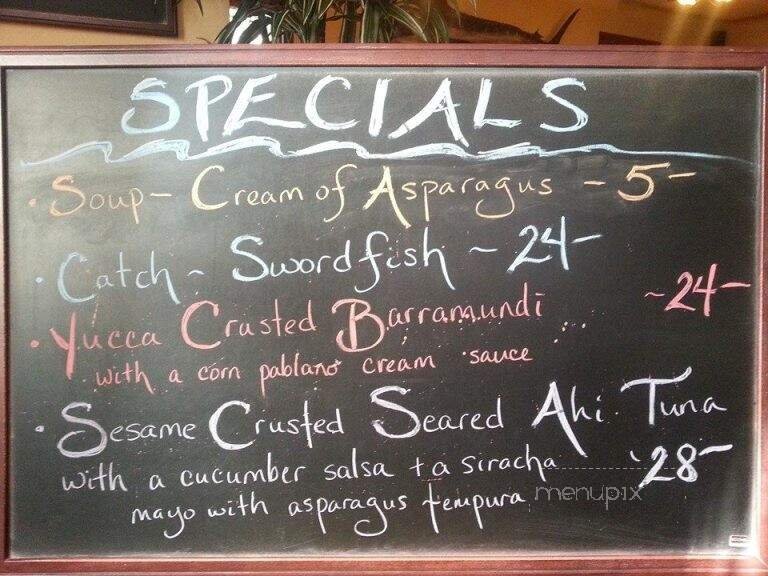 SPECIALS
· Soup - Cream of Asparagus - 5 -
· Catch ~ Swordfish ~ 24 -
· Yucca Crusted Barramundi ~ 24 -
with a corn pablano cream sauce
· Sesame Crusted Seared Ahi Tuna
with a cucumber salsa + a siracha 28 -
mayo with asparagus tempura
menupix